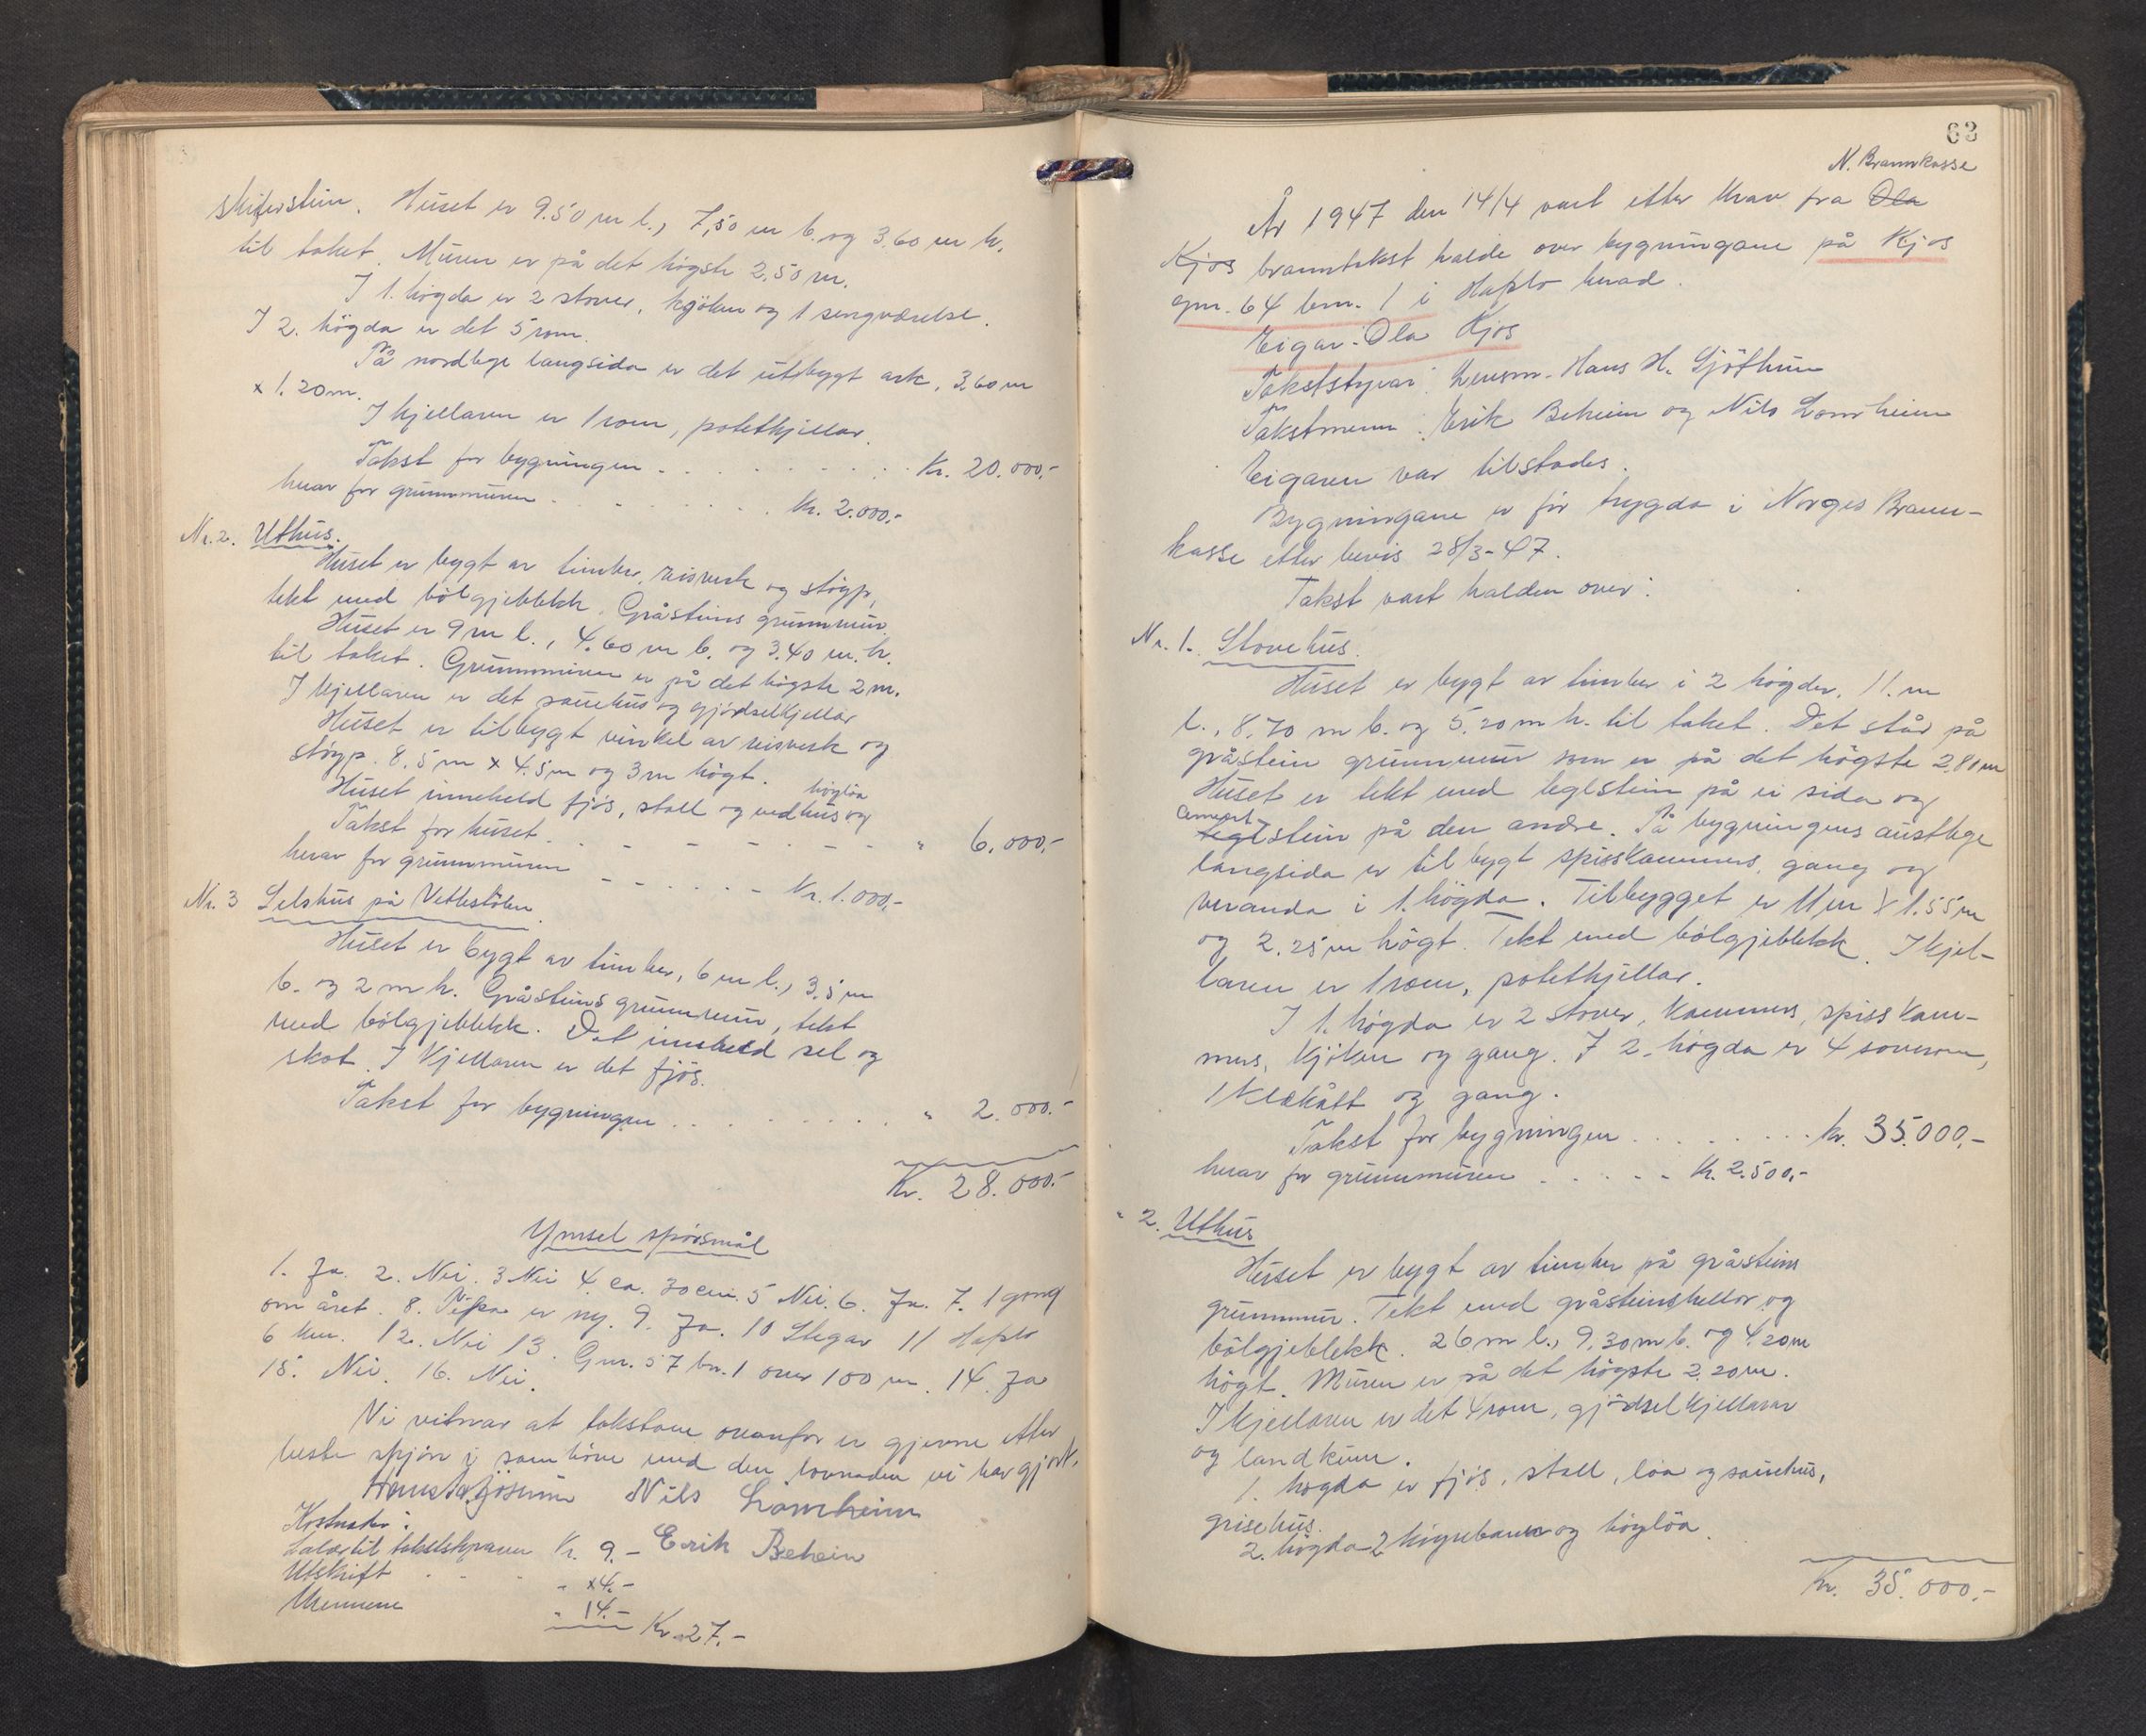 skiferstein. Huset er 9.50 m l., 7,50 m b. og 3,60 m h.
til taket. Muren er på det högste 2,50 m.
I 1. högda er 2 stover, kjöken og 1 sengværelse.
I 2. högda er det 5 rom.
På nordlege langsida er det utbygt ark, 3,60 m
x 1.20 m.
I kjellaren er 1 rom, potetkjellar.
Takst for bygningen . . . . . . . . Kr. 20.000,-
herav for grunnmuren . . . . . . . Kr. 2.000,-
Nr. 2. Uthus.
Huset er bygt av timber, reisverk og stöyp,
tekt med bölgjeblekk. Gråsteins grunnmur.
Huset er 9 m l., 4.60 m b. og 3.40 m. h.
til taket. Grunnmuren er på det högste 2 m.
I kjellaren er det sauehus og gjödselkjellar
Huset er tilbygt vinkel av reisverk og
stöyp. 8,5 m x 4.5 m og 3 m högt.
Huset inneheld fjös, stall og vedhus og höyløa
Takst for huset . - - - - - - - " 6.000,-
herav for grunnmuren - - - - - - Kr. 1.000,-
Nr. 3 Selshus på Vettestölen
Huset er bygt av timber, 6 m l., 3,5 m
b. og 2 m h. Gråsteins grunnmur, tekt
med bölgjeblekk. Det inneheld sel og
skot. I kjellaren er det fjös.
Takst for bygningen . . . . . . . . . " 2.000.-
Kr. 28.000.-
Ymsel spörsmål
1. Ja. 2. Nei. 3 Nei 4. ca. 30 cm. 5 Nei. 6. Ja. 7. 1 gong
om året. 8. Pipa er ny. 9. Ja. 10 Stegar 11 Hafslo
6 km. 12. Nei 13. Gnr. 57 bn. 1 over 100 m. 14. Ja
15. Nei. 16. Nei.
Vi vitnar at takstane ovanfor er gjevne etter
beste skjön i samhöve med den lovnaden vi har gjort.
Hans H. Sjöthun Nils Lomheim
Kostnader:
Salær til takststyraren Kr. 9.- Erik Beheim
Utskrift . - - - x4.-
Mennene " 14.- Kr. 27.-
63
N. Brannkasse
År 1947 den 14/4 vart etter krav fra Ola
Kjos branntakst halde over bygningane på Kjos
gnr. 64 bnr. 1 i Hafslo herad.
Eigar: Ola Kjos
Takststyrar: Lensm. Hans H. Sjöthun
Takstmenn: Erik Beheim og Nils Lomheim
Eigaren var tilstades.
Bygningane er för trygda i Norges Brann-
kasse etter bevis 28/3-47.
Takst vart halden over:
Nr. 1. Stovehus.
Huset er bygt av timber i 2 högder, 11. m
l., 8,70 m b. og 5.20 m h. til taket. Det står på
gråstein grunnmur som er på det högste 2,80 m
Huset er tekt med teglstein på ei sida og
cement
teglstein på den andre. På bygningens austlege
langsida er til bygt spisskammers, gang og
veranda i 1. högda. Tilbygget er 11 m x 1.55 m
og 2.25 m högt. Tekt med bölgjeblekk. I kjel-
laren er 1 rom, potetkjellar.
I 1. högda er 2 stover, kammers, spisskam-
mers, kjöken og gang. I 2. högda er 4 soverom,
1 klekått og gang.
Takst for bygningen . . . . . . . . kr. 35.000,-
herav for grunnmuren . . . - - Kr. 2.500,-
" 2. Uthus
Huset er bygt av timber på gråsteins
grunnmur. Tekt med gråsteinshellor og
bölgjeblekk. 26 m l., 9,30 m b. og 4.20 m
högt. Muren er på det högste 2,20 m.
I kjellaren er det 4 rom, gjödselkjellarar
og landkum.
1. högda er fjös, stall, löa og sauehus,
grisehus.
2. högda 2 köyrebanor og höylöa.
Kr. 35.000,-